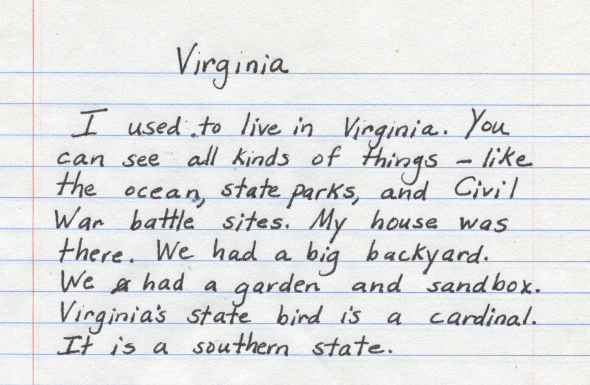 Virginia
I used to live in Virginia. You
can see all kinds of things – like
the ocean, state parks, and Civil
War battle sites. My house was
there. We had a big backyard.
We had a garden and sandbox.
Virginia's state bird is a cardinal.
It is a southern state.